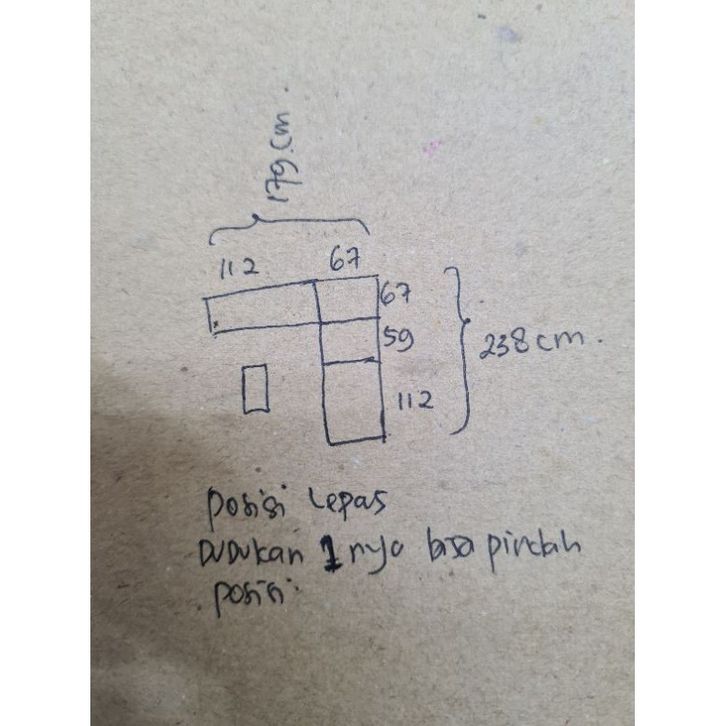 179 cm.
112
67
67
59
238 cm.
112
posisi Lepas
DUDUKAN 1 nya bisa pindah
posisi.